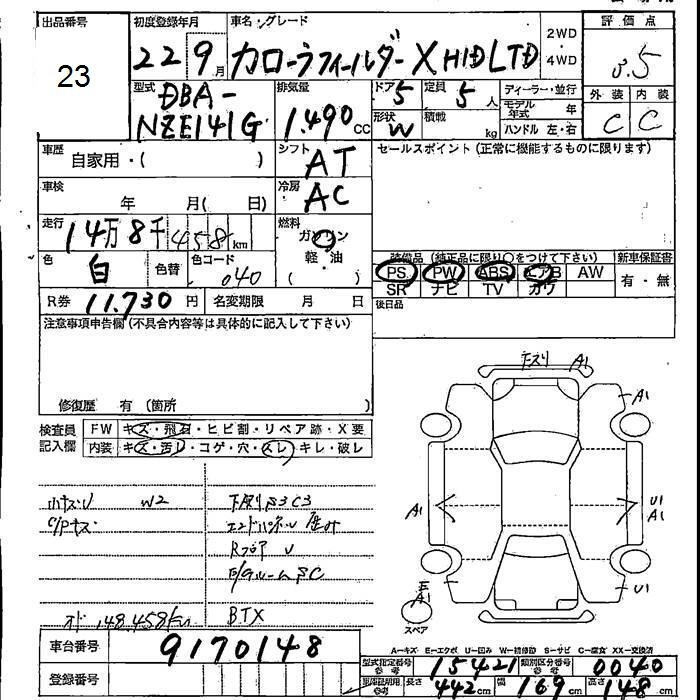 出品番号 初度登録年月 車名・グレード 2WD・4WD 評価点
23 22 9月 カローラフィールダー X HID LTD 5
型式 DBA-NZE141G 排気量 1.490 CC ドア 5 定員 5 人 ディーラー・並行 外装 内装
形状 W 積載 kg モデル年式 年 C C
ハンドル 左・右
車歴 自家用・( ) シフト AT セールスポイント (正常に機能するものに限ります)
車検 年 月( 日) 冷房 AC
走行 14万8千458km 燃料 ガソリン
色 白 色替 色コード 040 軽・油 ( )
装備品 (純正品に限り○をつけて下さい) 新車保証書
PS PW ABS エアB AW 有・無
SR ナビ TV カワ
R券 11.730 円 名変期限 月 日 後日品
注意事項申告欄 (不具合内容等は具体的に記入して下さい)
修復歴 有 (箇所 )
検査員記入欄 FW キズ・飛石・ヒビ割・リペア跡・X要
内装 キズ・汚レ・コゲ・穴・スレ・キレ・破レ
下スリ A1
A1
小キズU W2
A1 U1 A1
Rフロア U
E A1 U1
スペア
オド 148.458km BTX
A-キズ E-エクボ U-凹み W-補修跡 S-サビ C-腐食 XX-交換済
車台番号 9170148
型式指定番号 参考 15421 類別区分番号 参考 0040
登録番号
参考 長さ 442 cm 幅 169 cm 高さ 148 cm